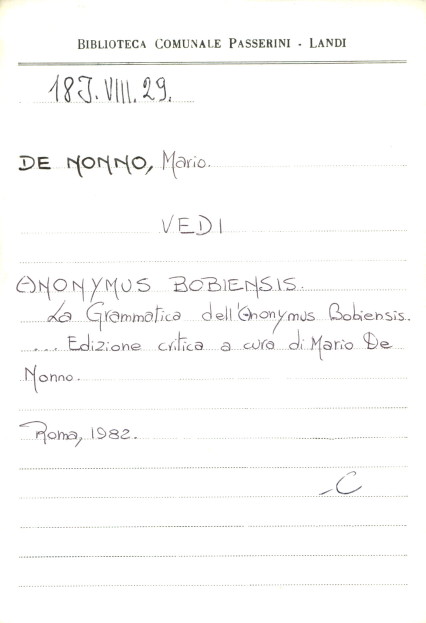 BIBLIOTECA COMUNALE PASSERINI - LANDI
18J.VIII.29.
DE NONNO, Mario.
VEDI
ANONYMUS BOBIENSIS.
La Grammatica dell'Anonymus Bobiensis.
... Edizione critica a cura di Mario De
Nonno.
Roma, 1982.
-C